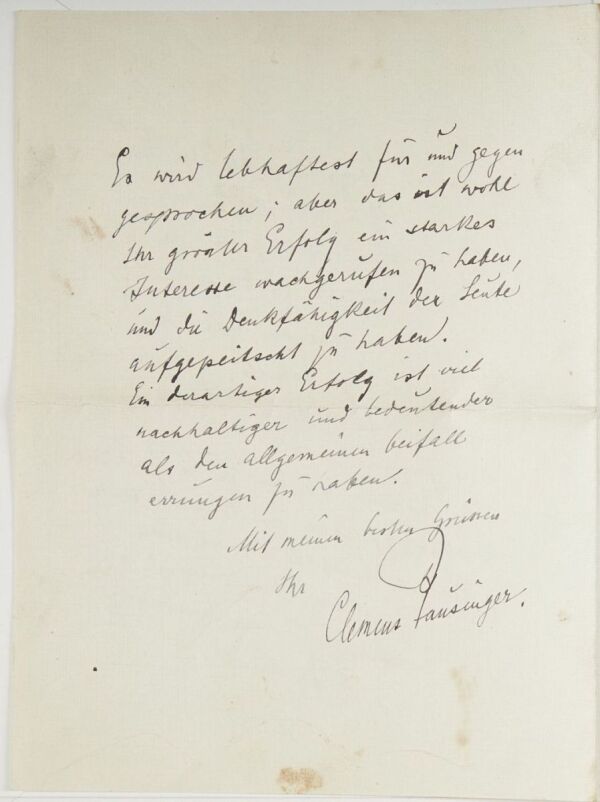 Es wird lebhaftest für und gegen
gesprochen; aber das ist wohl
Ihr größter Erfolg ein starkes
Interesse wachgerufen zu haben,
und die Denkfähigkeit der Leute
aufgepeitscht zu haben.
Ein derartiger Erfolg ist viel
nachhaltiger und bedeutender
als den allgemeinen beifall
errungen zu haben.
Mit meinen besten Grüssen
Ihr
Clemens Pausinger.